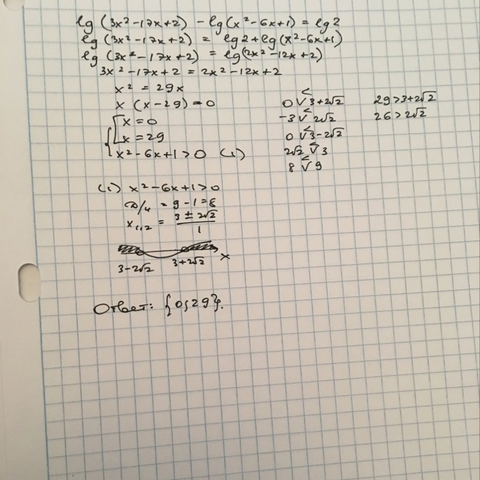 lg(3x²-17x+2) - lg(x²-6x+1) = lg2
lg(3x²-17x+2) = lg2+lg(x²-6x+1)
lg(3x²-17x+2) = lg(2x²-12x+2)
3x²-17x+2 = 2x²-12x+2
x² = 29x
x(x-29)=0
{[x=0
[x=29
x²-6x+1>0 (1)
0 √< 3+2√2
-3 √< 2√2
0 √< 3-2√2
2√2 √< 3
8 √< 9
29>3+2√2
26>2√2
(1) x²-6x+1>0
D/4 = 9-1=8
x₁,₂ = (3±2√2)/1
3-2√2 3+2√2 x
Ответ: {0;29}.